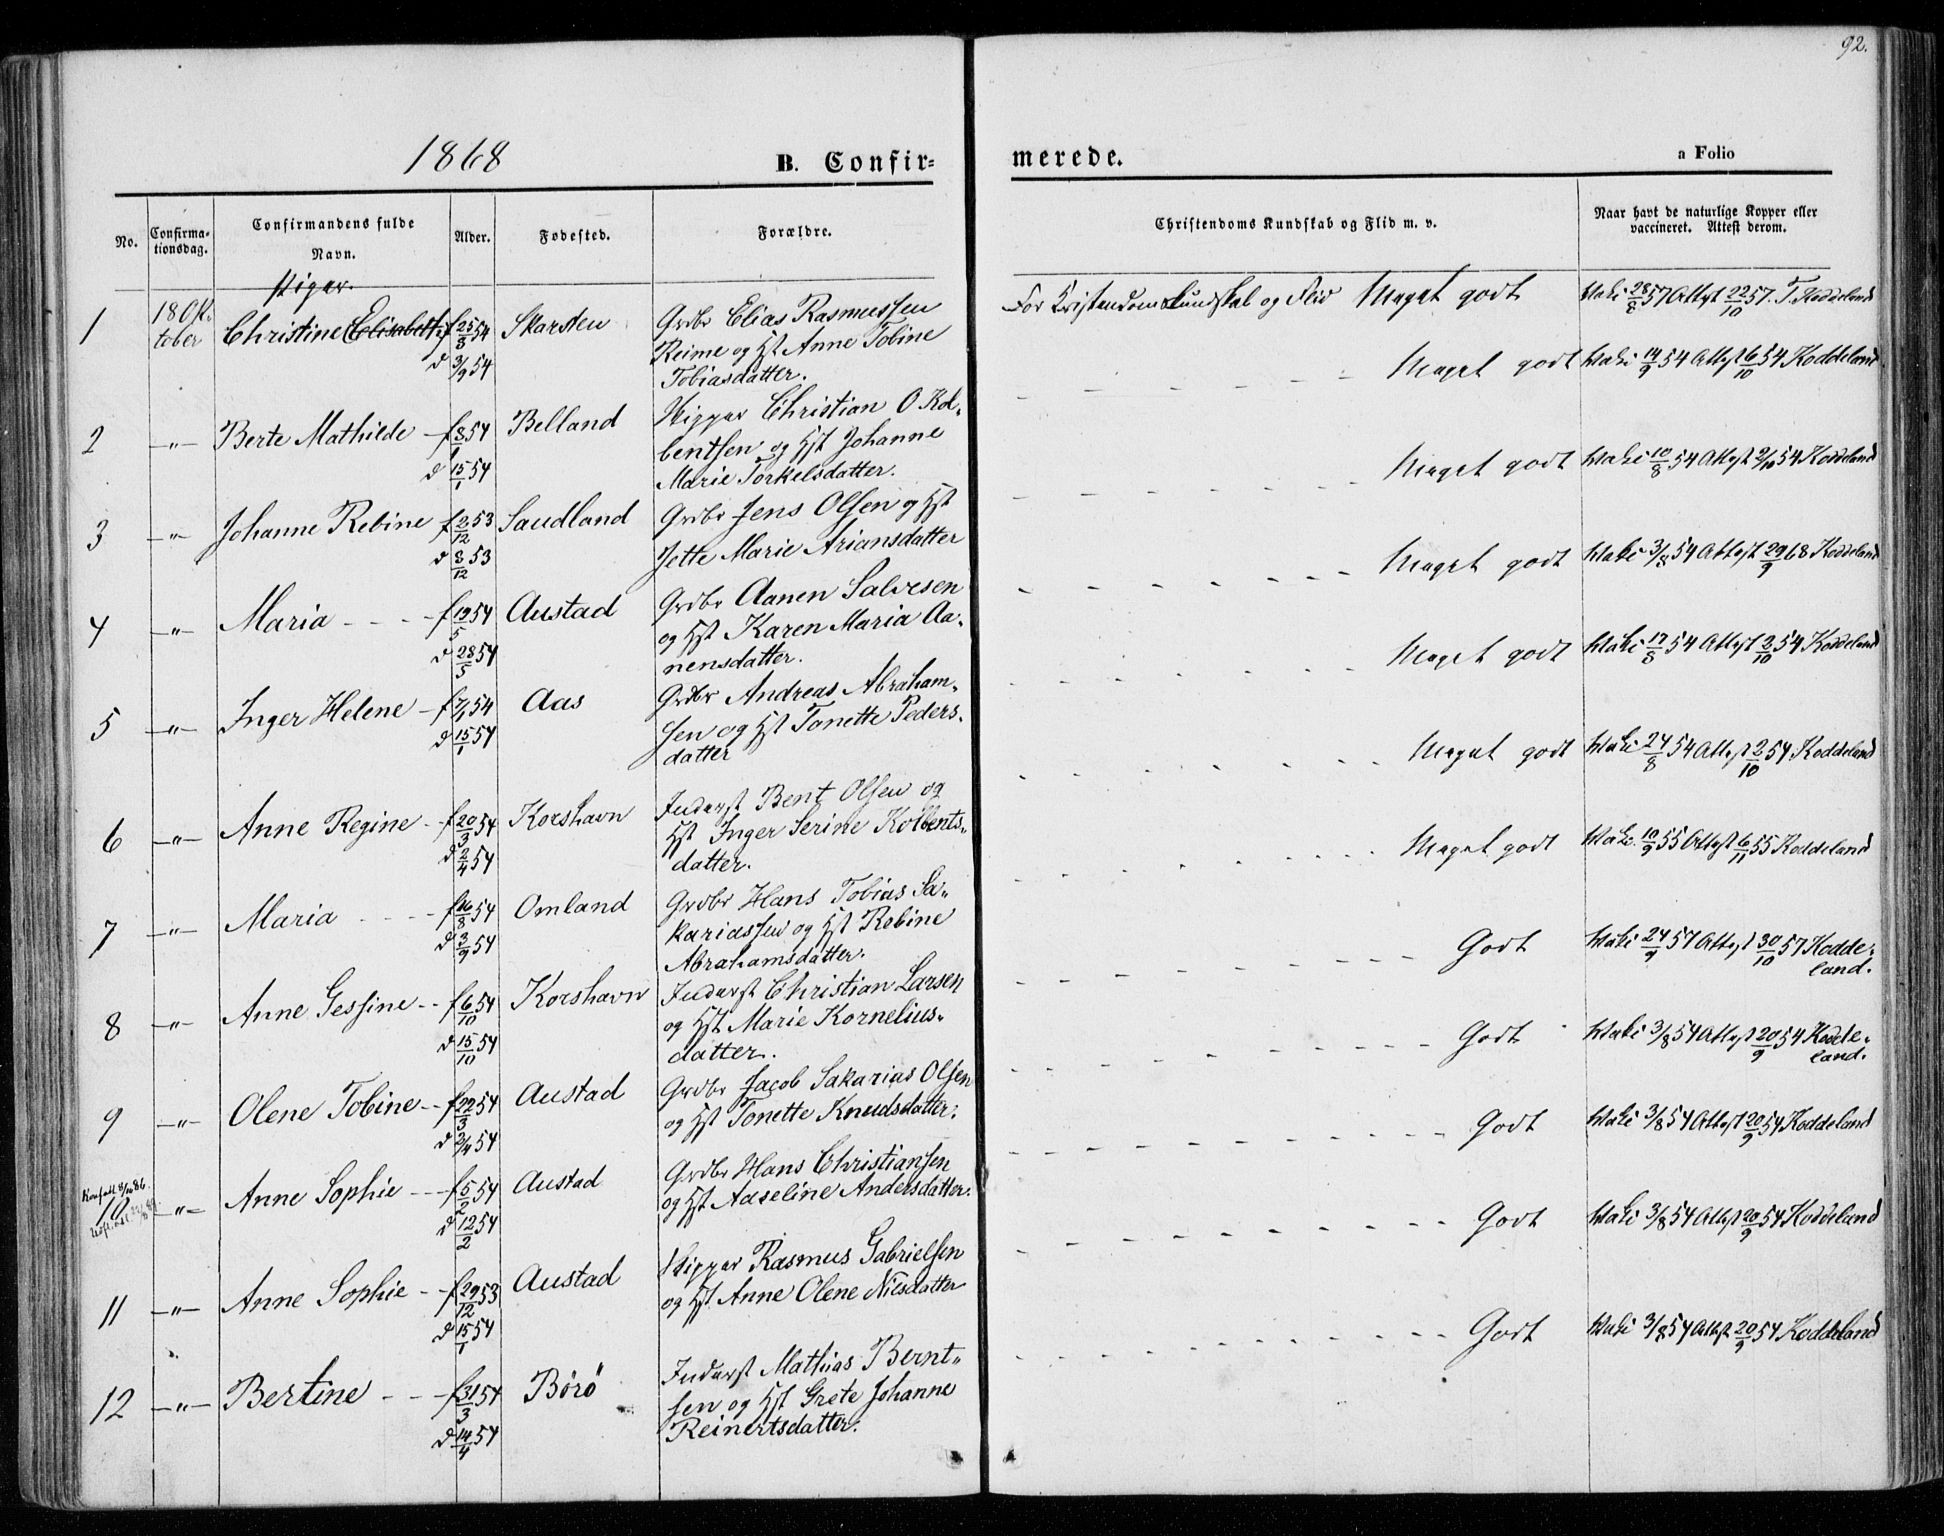 92.
1868
B. Confir-
merede.
a Folio
No.
Confirma-
tionsdag.
Confirmandens fulde
Navn.
Alder.
Fødested.
Forældre.
Christendoms Kundskab og Flid m. v.
Naar havt de naturlige Kopper eller
vaccineret. Attest derom.
Piger.
1 18 Ok- Christine Elisabeth f 25/8 54 Skarsten Grdbr Elias Rasmussen
tober d 3/9 54 Reime og Hst Anne Tobine
Tobiasdatter.
For Kristendomskundskab og Flid Meget godt Vaki 28/8 57 Attest 22/10 57. T. Koddeland
2 -"- Berte Mathilde f 8/1 54 Belland Skipper Christian O Kol-
d 15/1 54 bentsen og Hst Johanne
Marie Torkelsdatter.
Meget godt Vaki 14/9 54 Attest 6/10 54 Koddeland
3 -"- Johanne Rebine f 2/12 53 Saudland Grdbr Jens Olsen og Hst
d 8/12 53 Jette Marie Ariansdatter
Meget godt Vaki 10/8 54 Attest 2/10 54 Koddeland
4 -"- Maria f 19/5 54 Austad Grdbr Aanen Salvesen
d 28/5 54 og Hst Karen Maria Aa-
nensdatter.
Meget godt Vaki 3/8 54 Attest 29/9 68 Koddeland
5 -"- Inger Helene f 7/1 54 Aas Grdbr Andreas Abraham-
d 15/1 54 sen og Hst Tonette Peders-
datter
Meget godt Vaki 17/8 54 Attest 2/10 54 Koddeland
6 -"- Anne Regine f 20/3 54 Korshavn Inderst Bent Olsen og
d 2/4 54 Hst Inger Serine Kolbents-
datter.
Meget godt Vaki 24/8 54 Attest 2/10 54 Koddeland
7 -"- Maria f 16/8 54 Omland Grdbr Hans Tobias Sa-
d 3/9 54 kariassen og Hst Rebine
Abrahamsdatter.
Meget godt Vaki 10/9 55 Attest 6/11 55 Koddeland
8 -"- Anne Gessine f 6/10 54 Korshavn Inderst Christian Larsen
d 15/10 54 og Hst Marie Kornelius-
datter.
Godt Vaki 24/9 57 Attest 30/10 57 Kodde-
land.
9 -"- Olene Tobine f 22/3 54 Austad Grdbr Jacob Sakarias Olsen
d 2/4 54 og Hst Tonette Knudsdatter.
Godt Vaki 3/8 54 Attest 20/9 54 Kodde-
land.
10 -"- Anne Sophie f 5/2 54 Austad Grdbr Hans Christiansen
d 12/2 54 og Hst Aaseline Andersdatter.
Godt Vaki 3/8 54 Attest 20/9 54 Koddeland
11 -"- Anne Sophie f 29/12 53 Austad Skipper Rasmus Gabrielsen
d 15/1 54 og Hst Anne Olene Nilsdatter
Godt Vaki 3/8 54 Attest 20/9 54 Koddeland
12 -"- Bertine f 31/3 54 Börö Inderst Mathias Bernt-
d 14/4 54 sen og Hst Grete Johanne
Reinertsdatter.
Godt Vaki 3/8 54 Attest 20/9 54 Koddeland